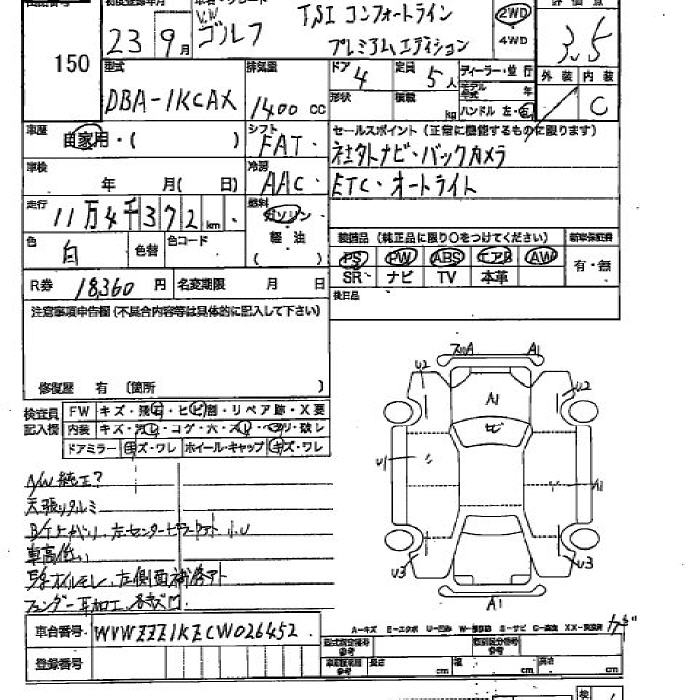 150
23年 9月
V.W
ゴルフ
TSI コンフォートライン
プレミアムエディション
2WD
4WD
3.5
型式
DBA-1KCAX
排気量
1400 cc
ドア 4
定員 5人
ディーラー・並行
形状
積載 kg
モデル年式 年
ハンドル 左・右
外装 内装
C
車歴
自家用・( )
シフト
FAT・
セールスポイント (正常に機能するものに限ります)
社外ナビ・バックカメラ
ETC・オートライト
車検
年 月( 日)
冷房
AAC・
走行
11万4千372km
燃料
ガソリン・
軽油
( )
色
白
色替
色コード
装備品 (純正品に限り○をつけてください)
新車保証書
PS PW ABS エアB AW
SR ナビ TV 本革
有・無
R券 18360円
名変期限 月 日
後日品
注意事項申告欄 (不具合内容等は具体的に記入して下さい)
修復歴 有 (箇所 )
検査員
記入欄
FW キズ・飛石・ヒビ割・リペア跡・X要
内装 キズ・汚レ・コゲ・穴・スレ・ヘタリ・破レ
ドアミラー キズ・ワレ ホイール・キャップ キズ・ワレ
A/W純正?
天張りタルミ
車高低い
左側面補修アト
フェンダー耳加工
A1
U2
A1
U2
ヒビ
U1
A1
U3
U3
A1
車台番号 WVWZZZ1KZCW026452
登録番号
A-キズ E-エクボ U-凹み
型式指定番号
参考
類別区分番号
参考
長さ cm 幅 cm 高さ cm